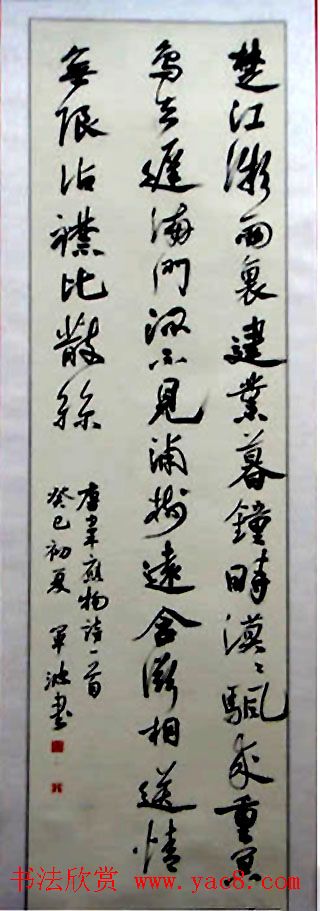 楚江微雨裏建業暮鐘時漠〻颿來重冥
鳥去遲海門深不見浦樹遠含滋相送情
無限沾襟比散絲
唐韋應物詩一首
癸巳初夏 軍波書
书法欣赏 www.yac8.com